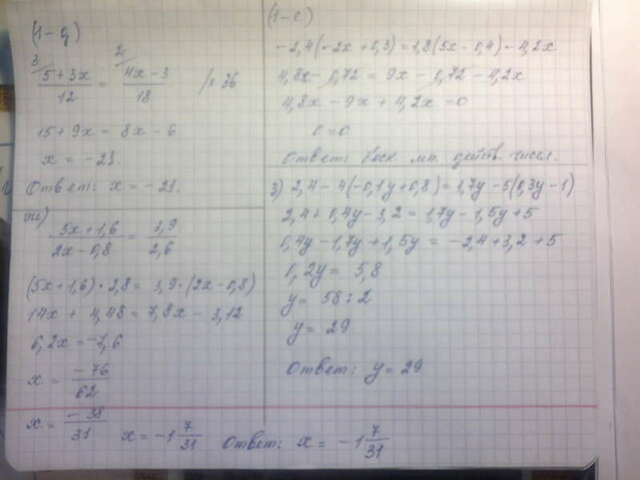 (1-g)
3 2
5+3x / 12 = 4x-3 / 18 /× 36
15+9x = 8x-6
x = -21.
Ответ: x = -21.
ж)
5x+1,6 / 2x-0,8 = 3,9 / 2,6
(5x+1,6)·2,8 = 3,9·(2x-0,8)
14x + 4,48 = 7,8x - 3,12
6,2x = -7,6
x = -76 / 62
x = -38 / 31 x = -1 7/31 Ответ: x = -1 7/31
(1-е)
-2,4(-2x+0,3) = 1,8(5x-0,4)-4,2x
4,8x - 0,72 = 9x - 0,72 - 4,2x
4,8x - 9x + 4,2x = 0
0=0
Ответ: беск. мн. действ. чисел.
з) 2,4-4(-0,1y+0,8) = 1,7y-5(0,3y-1)
2,4+0,4y-3,2 = 1,7y-1,5y+5
0,4y-1,7y+1,5y = -2,4+3,2+5
0,2y = 5,8
y = 58:2
y = 29
Ответ: y = 29